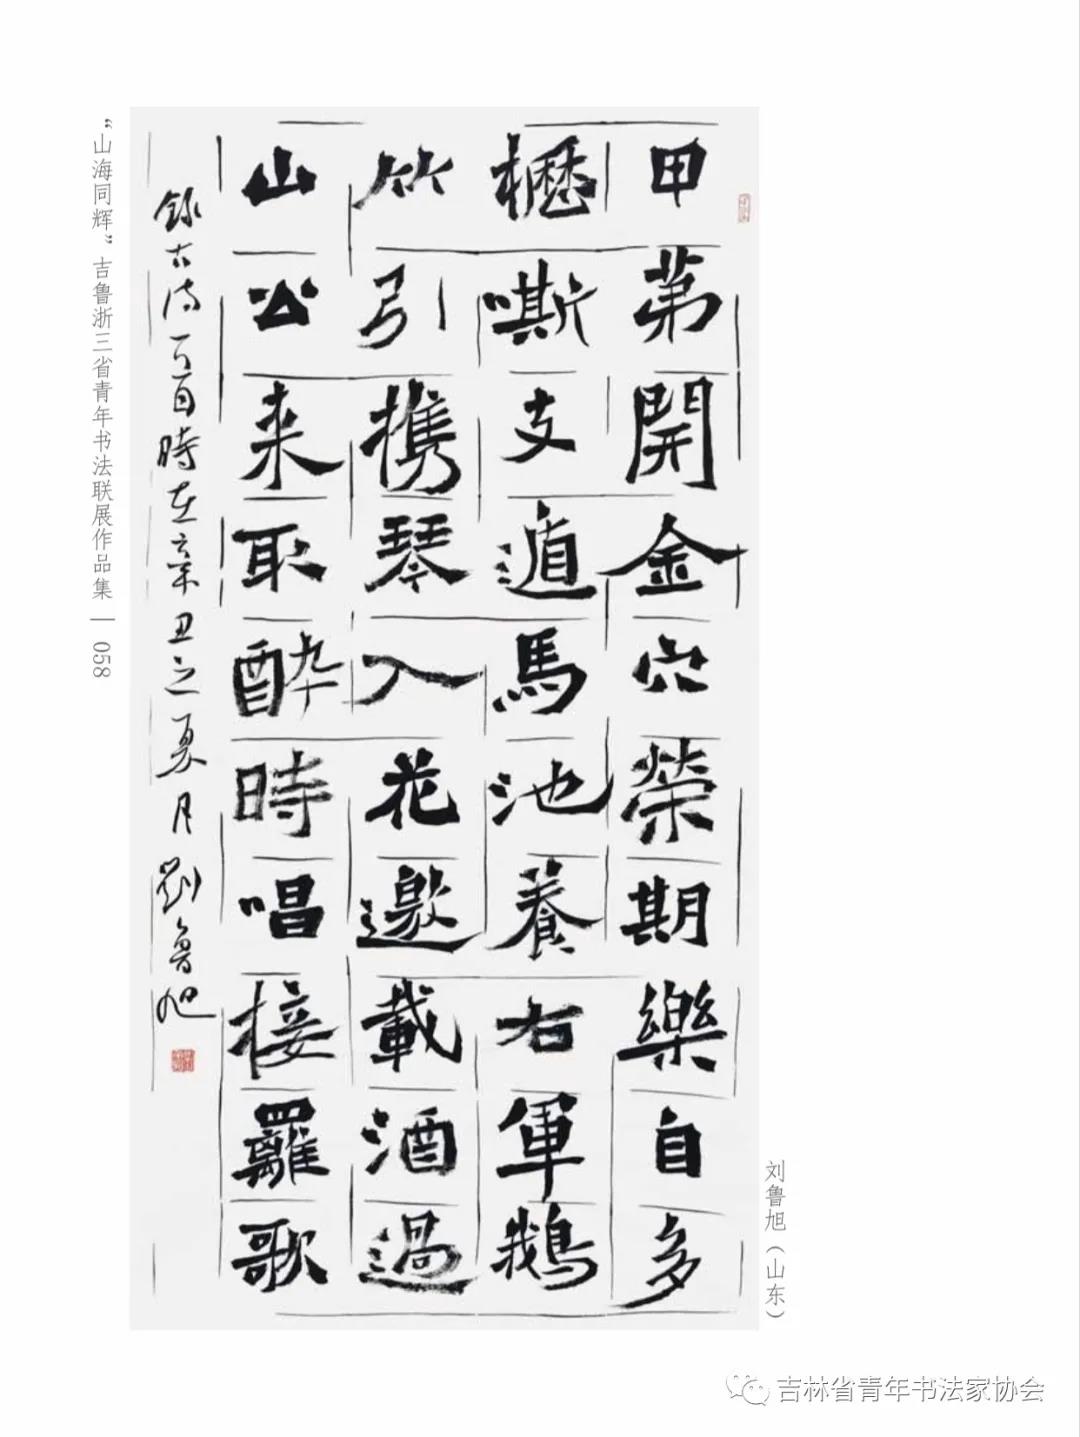 甲苐開金穴榮期樂自多
櫪嘶支遁馬池養右軍鵝
竹引携琴入花邀載酒過
山公来取醉時唱接䍦歌
録古诗一首時在辛丑之夏月劉魯旭
“山海同辉”吉鲁浙三省青年书法联展作品集 | 058
刘鲁旭（山东）
吉林省青年书法家协会